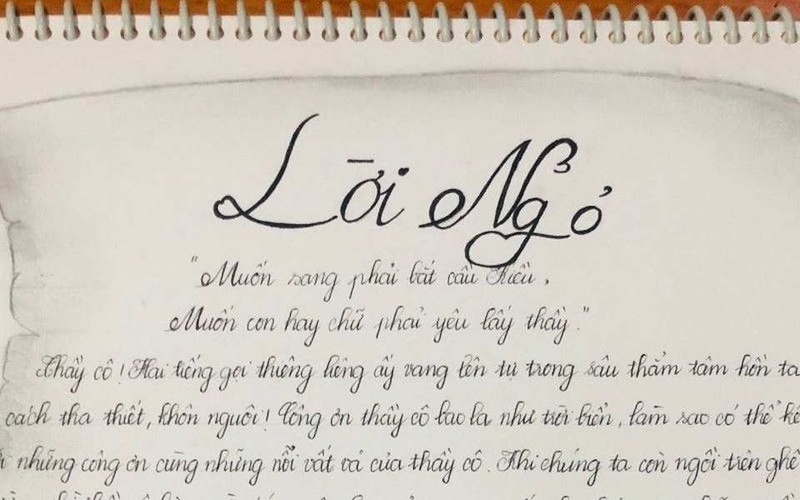 Lời Ngỏ
"Muốn sang phải bắt cầu Kiều,
Muốn con hay chữ phải yêu lấy thầy."
Thầy cô! Hai tiếng gọi thiêng liêng ấy vang lên từ trong sâu thẳm tâm hồn ta
cách tha thiết, khôn nguôi! Công ơn thầy cô bao la như trời biển, làm sao có thể kể
những công ơn cùng những nỗi vất vả của thầy cô. Khi chúng ta còn ngồi trên ghế